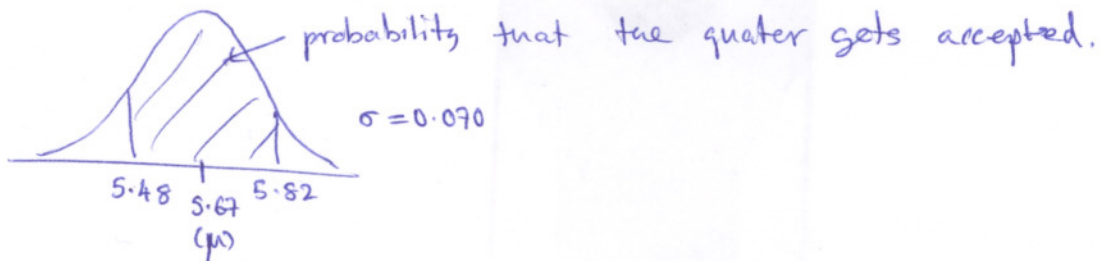 probability that the quater gets accepted.
σ = 0.070
5.48 5.67 5.82
(μ)